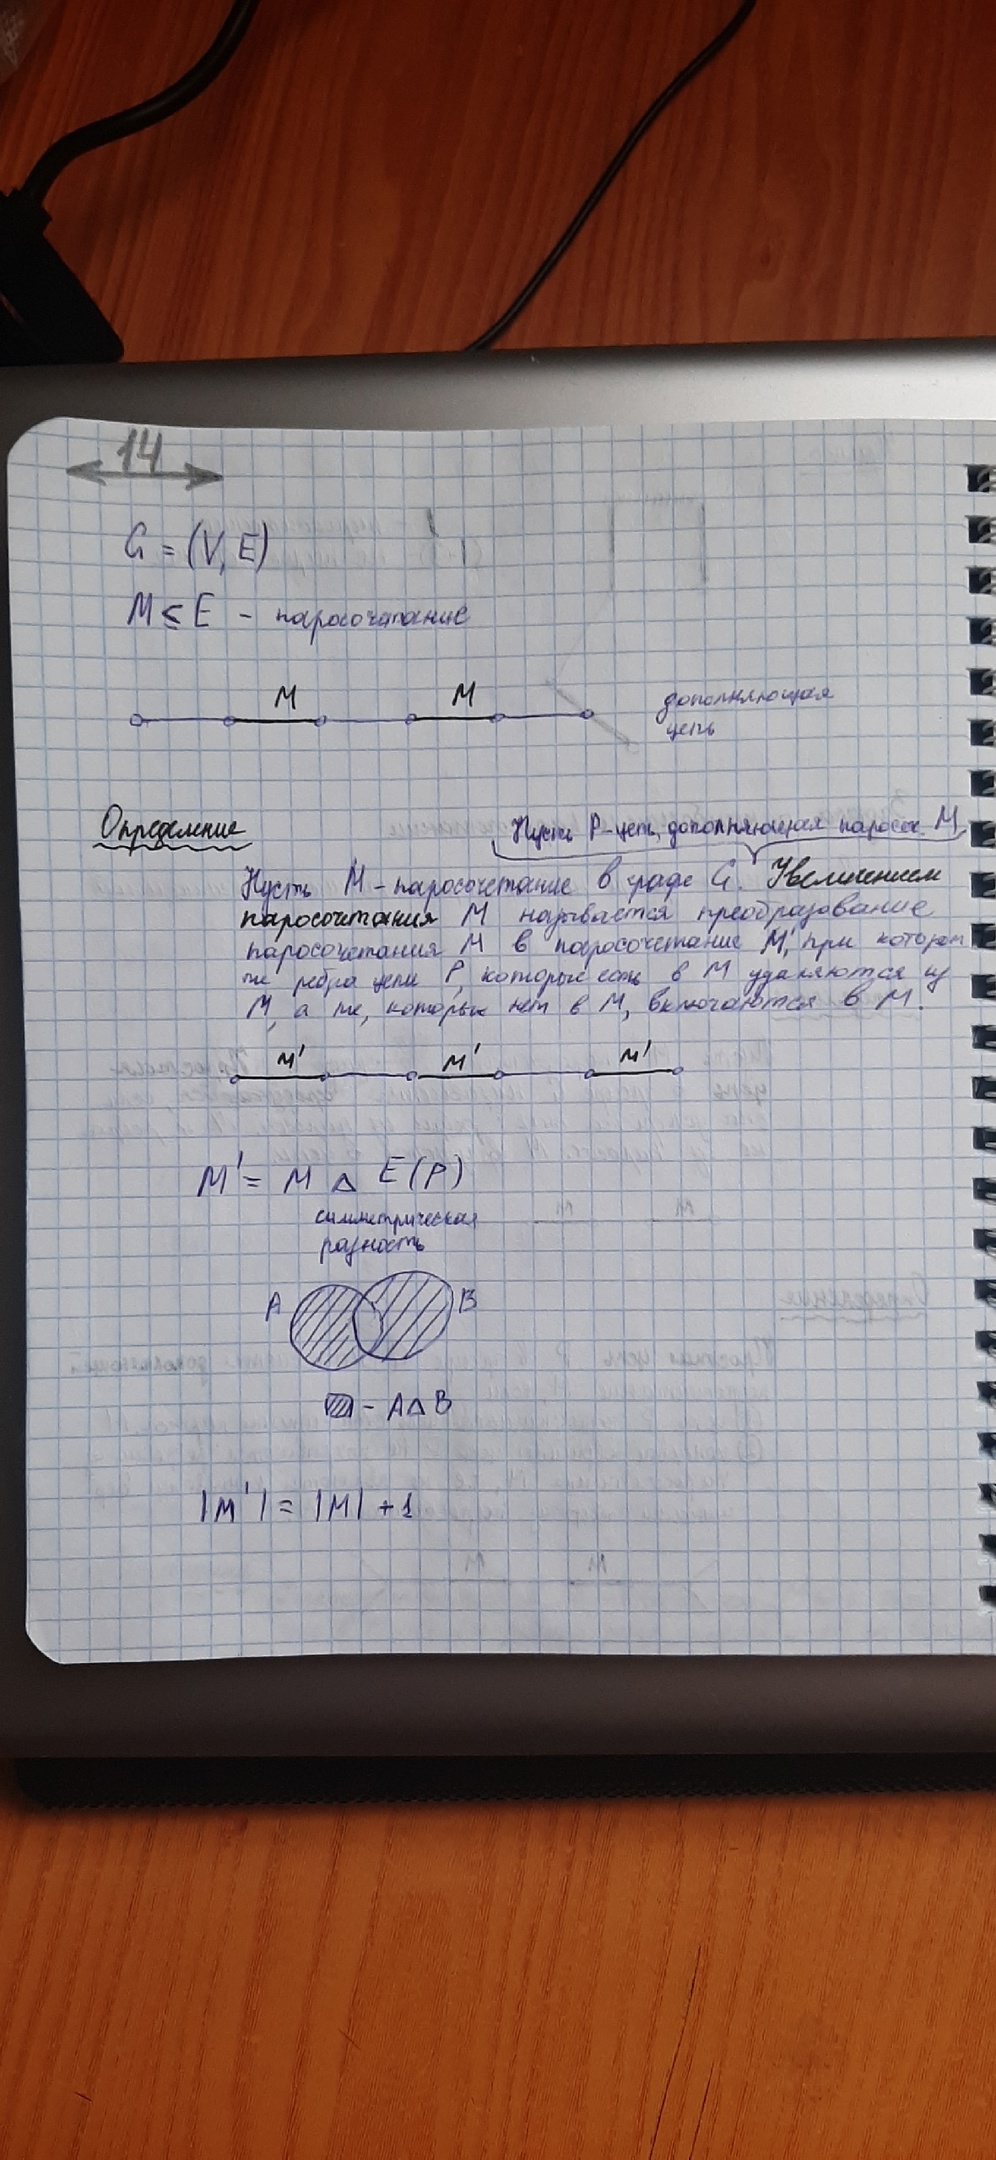 14
G = (V, E)
M ⊆ E - паросочетание
M M
дополняющая
цепь
Определение
Пусть P-цепь, дополняющая паросоч. M
Пусть M - паросочетание в графе G. Увеличением
паросочетания M называется преобразование
паросочетания M в паросочетание M', при котором
те ребра цепи P, которые есть в M удаляются из
M, а те, которых нет в M, включаются в M.
M' M' M'
M' = M △ E(P)
симметрическая
разность
A B
- A△B
|M'| = |M| + 1